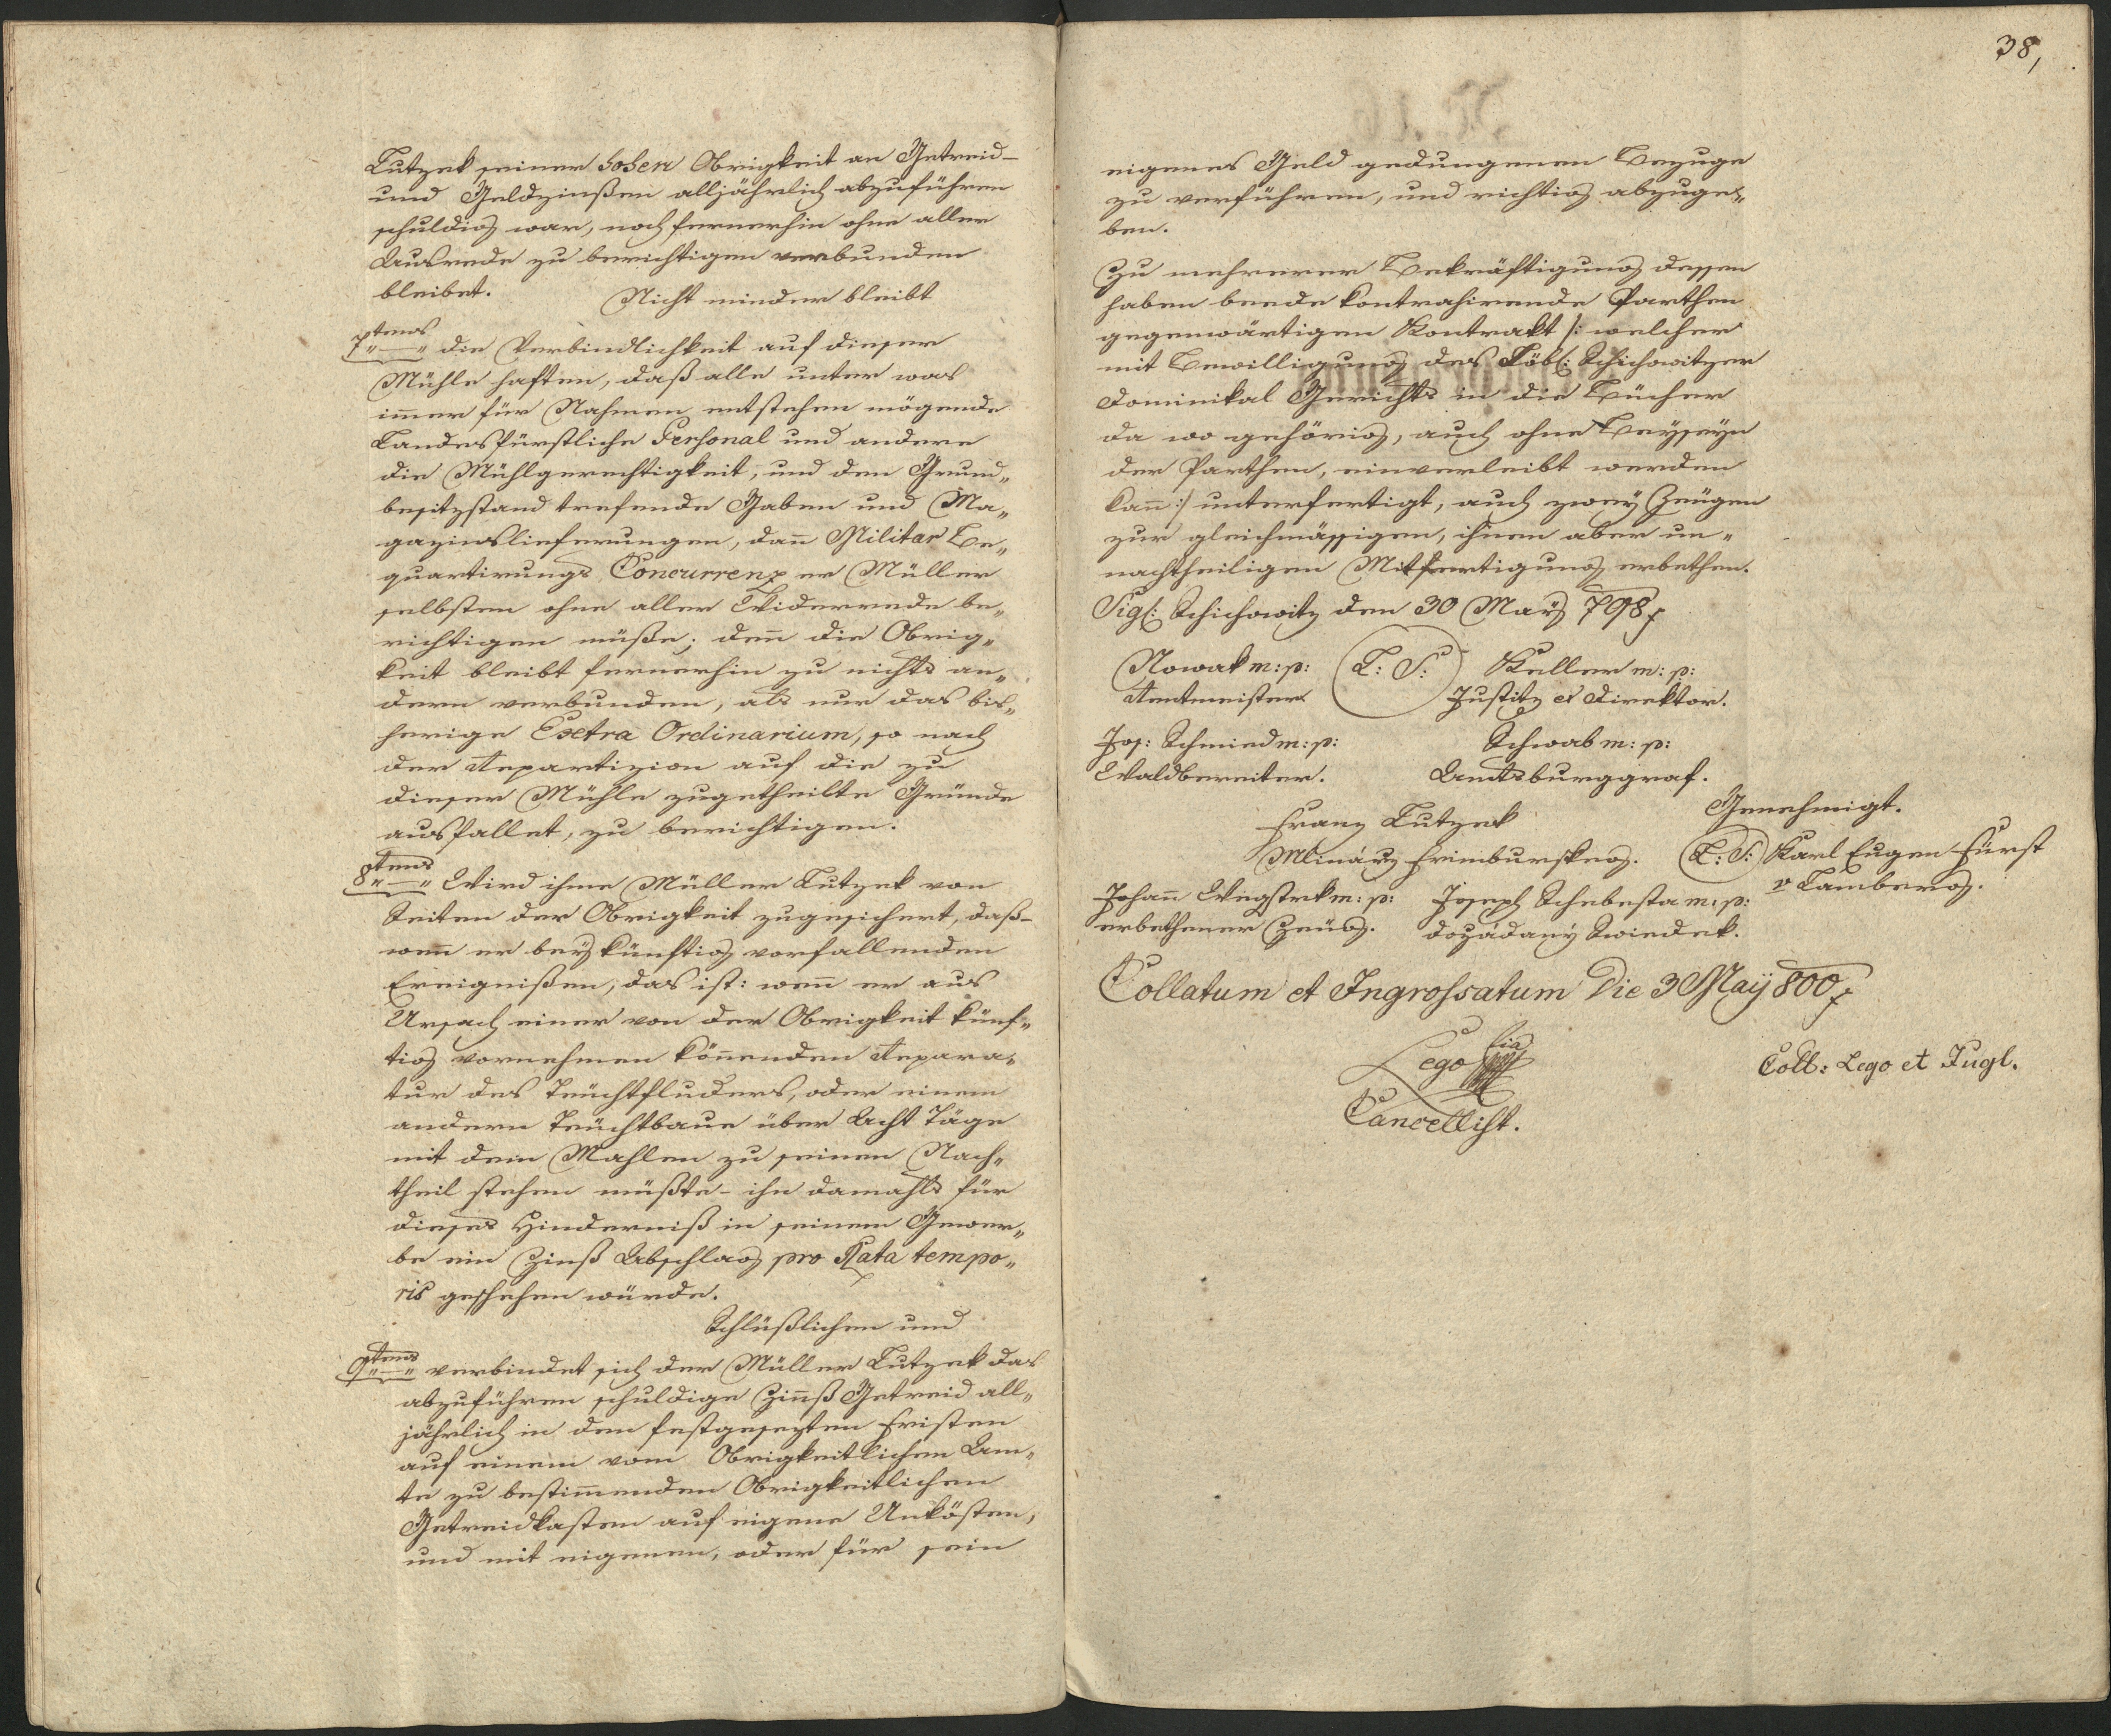 Lutzek seiner hohen Obrigkeit an Getreid-
und Geldzinßen alljährlich abzuführen
schuldig war, noch fernerhin ohne aller
Ausrede zu berichtigen verbunden
bleibet. Nicht minder bleibt
7tens die Verbindlichkeit auf dieser
Mühle haften, daß alle unter was
im̅er für Nahmen entstehen mögende
Landesfürstliche Personal und andere
die Mühlgerechtigkeit, und den Grund„
besitzstand trefende Gaben und Ma„
gazinslieferungen, dan̅ Militar Be„
quartirungs Concurrenz er Müller
selbsten ohne aller Widerrede be„
richtigen müße; den̅ die Obrig„
keit bleibt fernerhin zu nichts an„
dern verbunden, als nur das bis„
herige Extra Ordinarium, so nach
der Repartizion auf die zu
dieser Mühle zugetheilte Gründe
ausfallet, zu berichtigen.
8tens Wird ihme Müller Lutzek von
Seiten der Obrigkeit zugesichert, daß-
wen̅ er bey künftig vorfallenden
Ereignißen, das ist: wen̅ er aus
Ursach einer von der Obrigkeit künf„
tig vornehmen kön̅enden Repara„
tur des Teüchtfluders, oder einem
andern Teüchtbaue über Acht Täge
mit dem Mahlen zu seinen Nach„
theil stehen müßte- ihm damahls für
dieses Hinderniß in seinem Gewer„
be ein Zinß Abschlag pro Rata tempo„
ris geschehen würde.
Schlüßlichen und
9tens verbindet sich der Müller Lutzek das
abzuführen schuldige Zinnß Getreid all„
jährlich in den festgesezten Fristen
auf einem vom Obrigkeitlichen Am„
te zu bestim̅enden Obrigkeitlichen
Getreidkasten auf eigene Unkösten,
und mit eigenen, oder für sein
38,
eigenes Geld gedungenen Bezuge
zu verführen, und richtig abzuge„
ben.
Zu mehrerer Bekräftigung dessen
haben beede kontrahirende Parthen
gegenwärtigen Kontrakt /: welcher
mit Bewilligung des Löbl: Schichowitzer
Dominikal Gerichts in die Bücher
da wo gehörig, auch ohne Beyseyn
der Parthen, einverleibt werden
kan̅ :/ unterfertigt, auch zwey Zeügen
zur gleichmässigen, ihnen aber un„
nachtheiligen Mitfertigung erbethen.
Sigl: Schichowitz den 30 May 798
Nowak m: p: L: S: Keller m: p:
Rentmeister Justitz et Direktor.
Jos: Schmied m: p: Schwab m: p:
Waldbereiter. Amtsburggraf.
Genehmigt.
Franz Lutzek
Mlinárz Frimburskeg. L: S: Karl Eugen Fürst
v Lamberg.
Johan̅ m: p: Joseph Schebesta m: p:
erbethener Zeüg. dožádaný Swiedek.
Collatum et Ingrossatum Die 3 May 800
Lego
Cancellist.
Coll: Lego et Jugl.